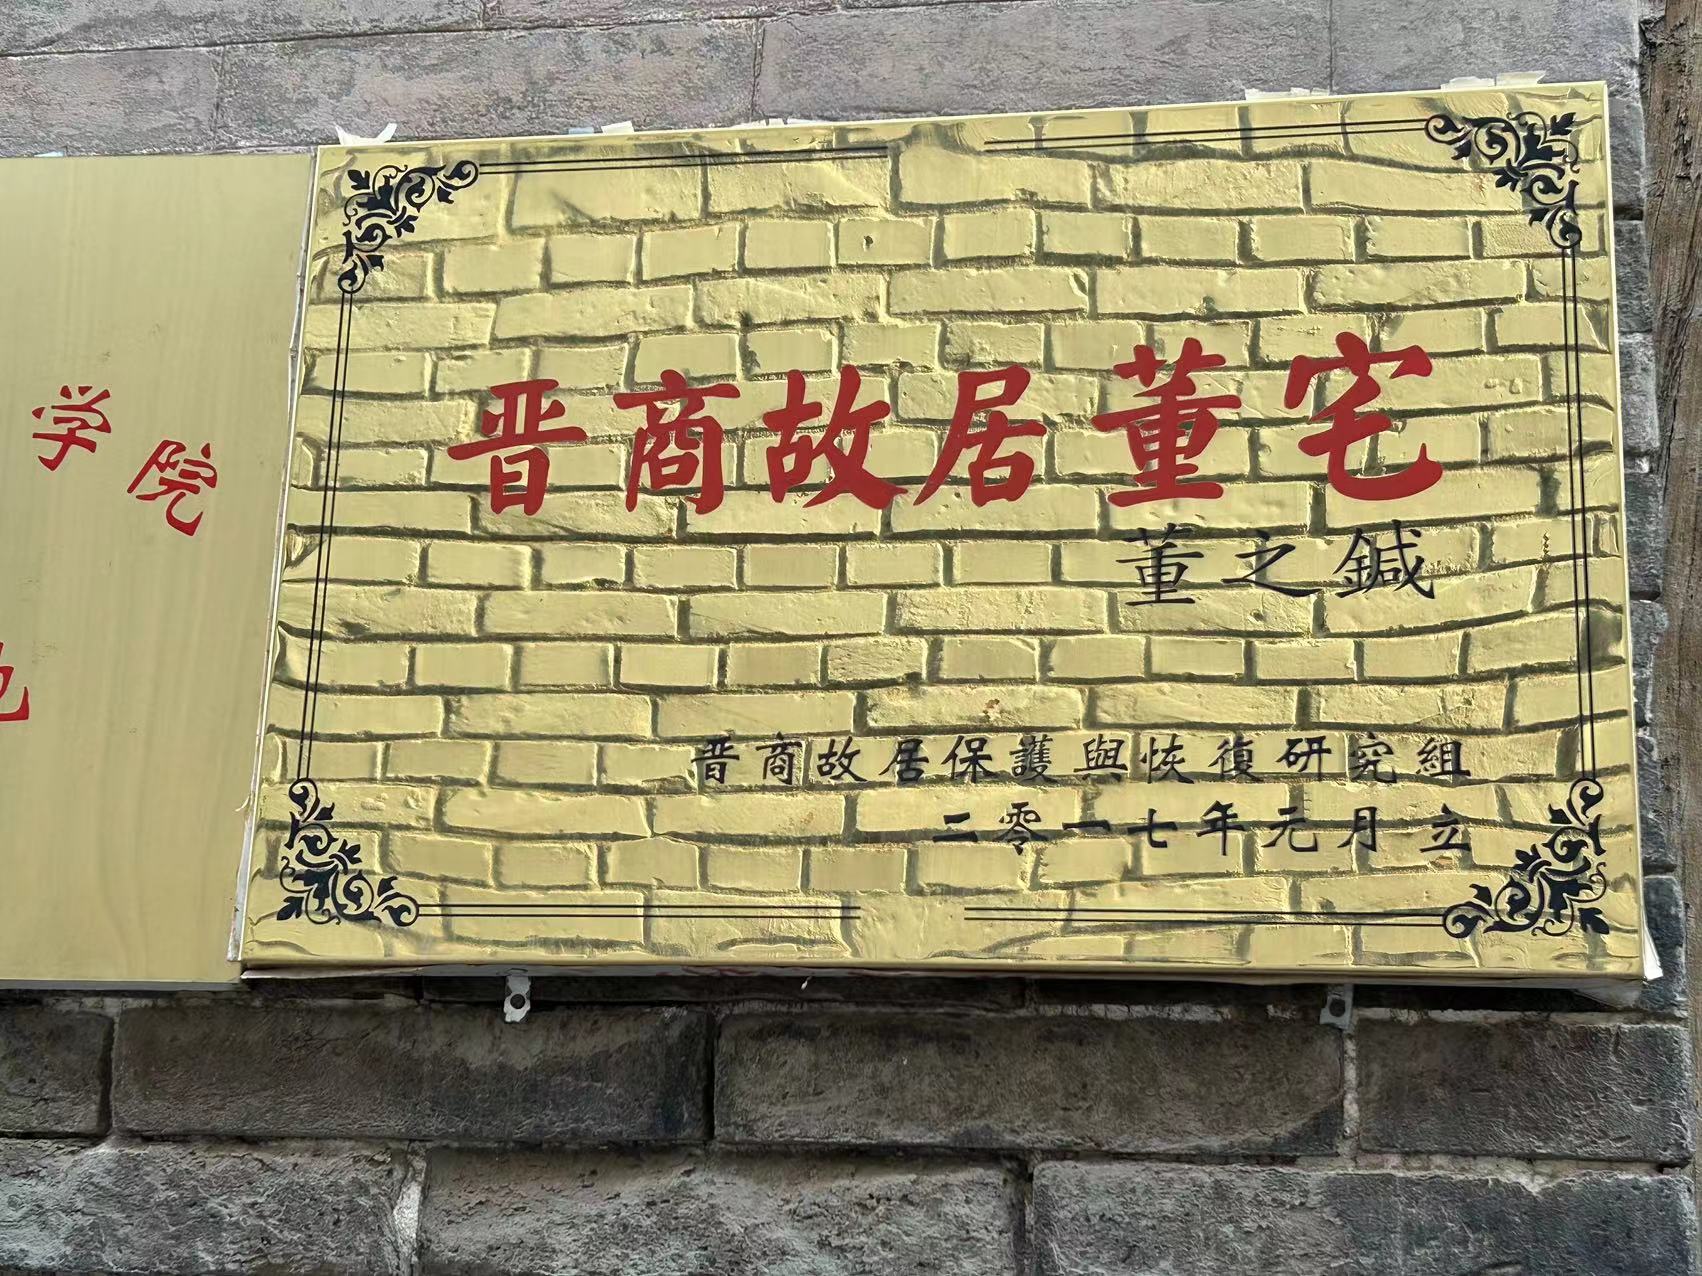 学院
地
晋商故居董宅
董之鍼
晋商故居保護與恢復研究組
二零一七年元月立